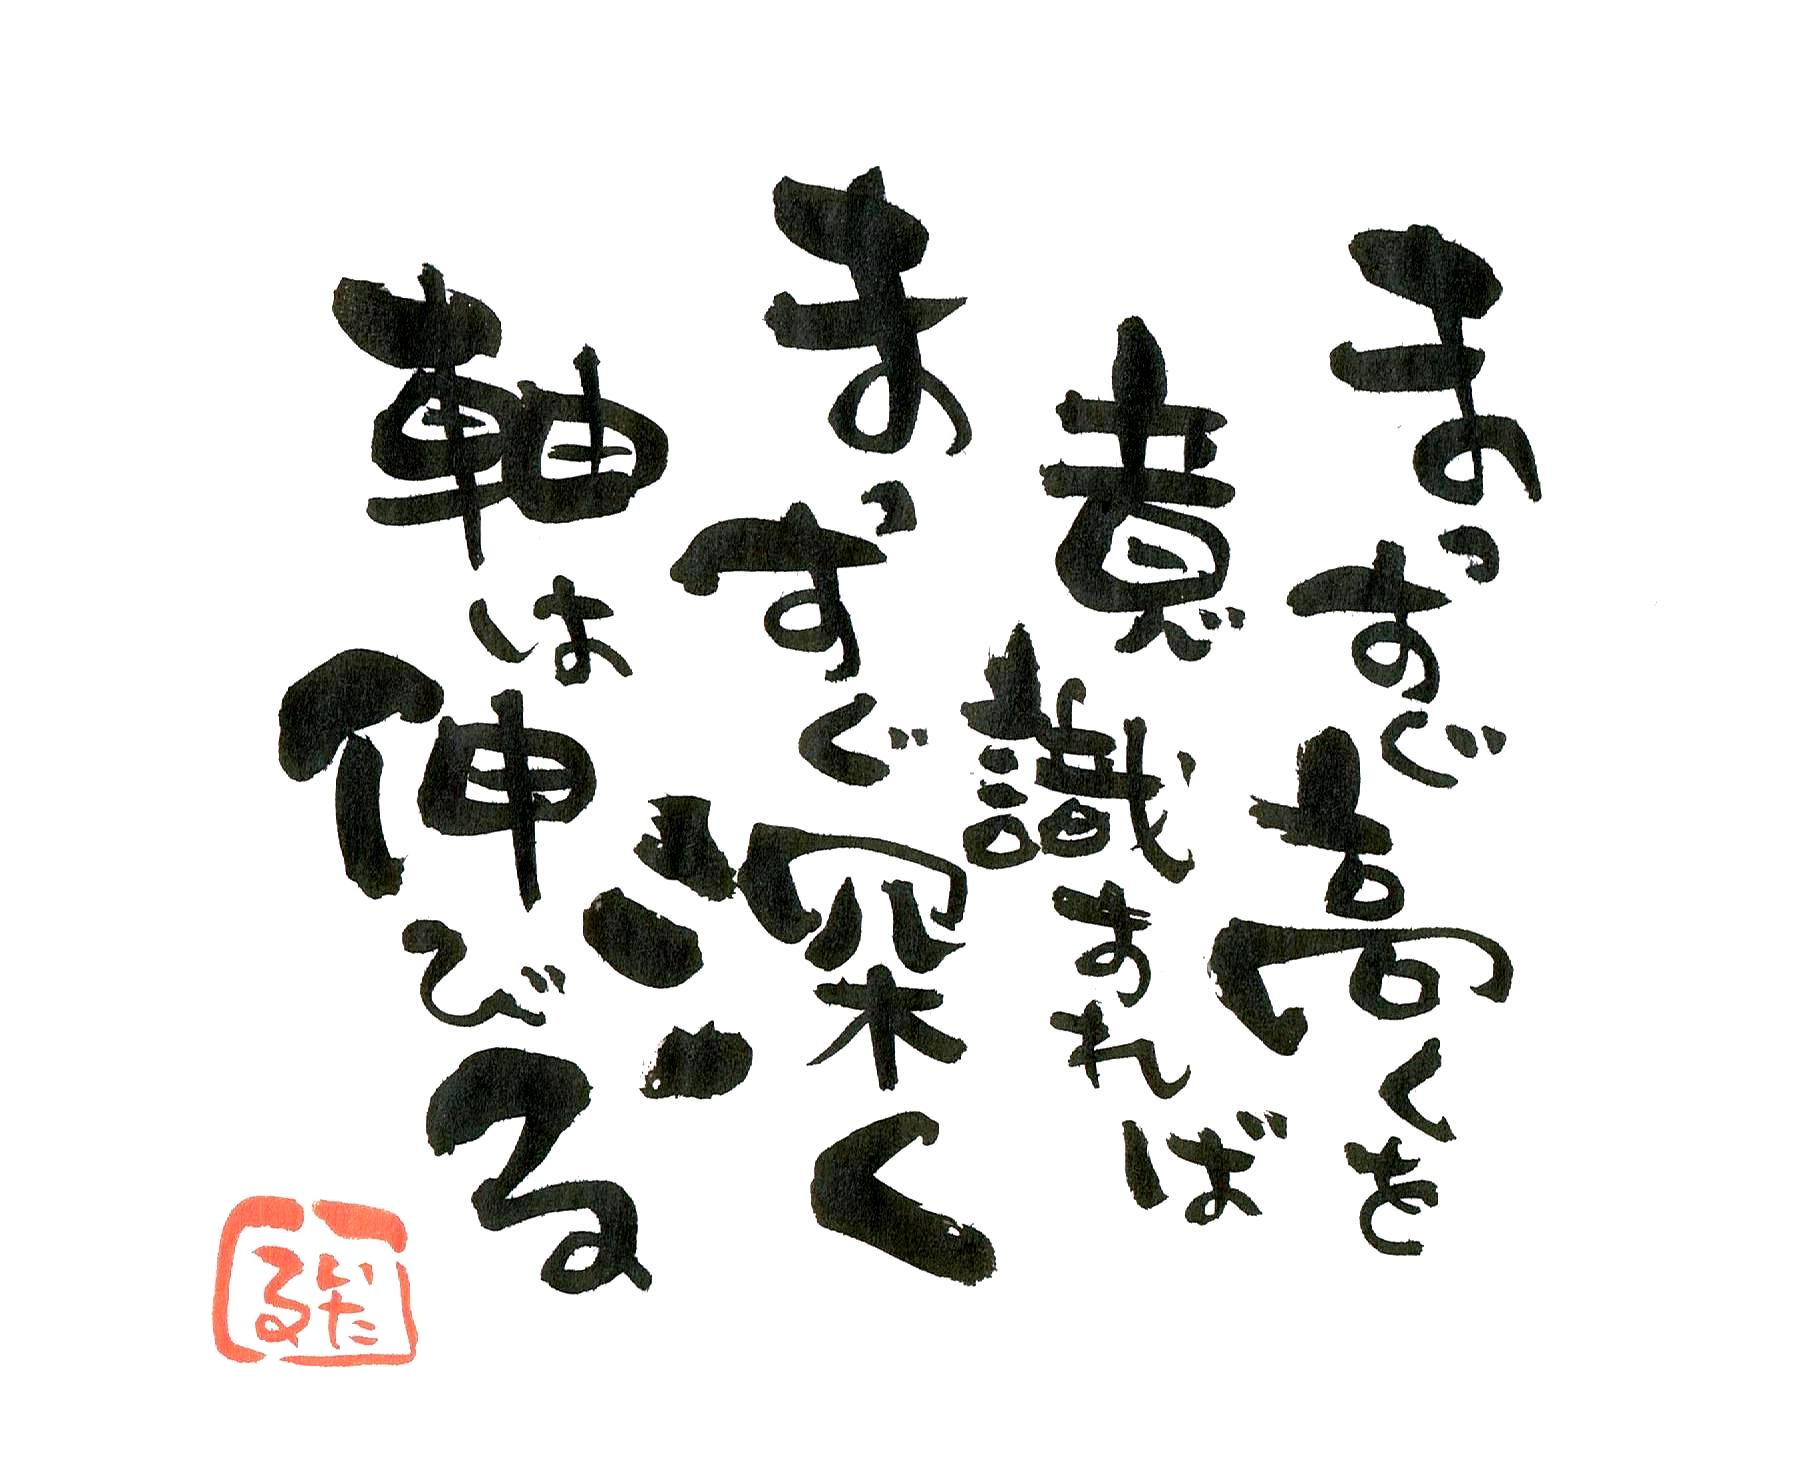 まっすぐ高くを
意識すれば
まっすぐ深く
軸は伸びる
いたる